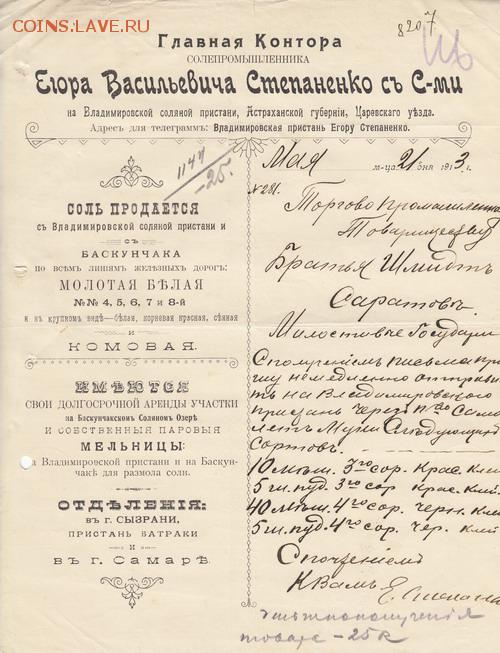 COINS.LAVE.RU
8207
Главная Контора
СОЛЕПРОМЫШЛЕННИКА
Егора Васильевича Степаненко съ С-ми
на Владимировской соляной пристани, Астраханской губерніи, Царевскаго уѣзда.
Адресъ для телеграммъ: Владимировская пристань Егору Степаненко.
Мая м-ца 21 дня 1913 г.
1144
-25.
№ 281.
СОЛЬ ПРОДАЕТСЯ
съ Владимировской соляной пристани и
съ
БАСКУНЧАКА
по всѣмъ линіямъ желѣзныхъ дорогъ:
МОЛОТАЯ БѢЛАЯ
№№ 4, 5, 6, 7 и 8-й
и въ крупномъ видѣ—бѣлая, корневая красная, сѣнная
и
КОМОВАЯ.
ИМѢЮТСЯ
СВОИ ДОЛГОСРОЧНОЙ АРЕНДЫ УЧАСТКИ
на Баскунчакскомъ Соляномъ Озерѣ
И СОБСТВЕННЫЯ ПАРОВЫЯ
МЕЛЬНИЦЫ:
на Владимировской пристани и на Баскун-
чакѣ для размола соли.
ОТДѢЛЕНІЯ:
въ г. СЫЗРАНИ,
ПРИСТАНЬ БАТРАКИ
и
въ г. Самарѣ.
Торгово Промышленно
Товариществу
Братья Шмидтъ
Саратовъ.
Милостивые Государи
Сполученіемъ письма про
шу немедленно отправи
ть на Владимировскую
пристань через П во Само
летъ Муки Слѣдующихъ
Сортовъ.
10 мѣш. 3го сор. Крас. Кл
5 ш. пуд. 3го сор Крас. Кл
40 мѣш. 4го сор. Черн. Кл
5 ш. пуд. 4го сор. Чер. Кл
Спочтеніемъ
К Вамъ Е.
товара -25 к